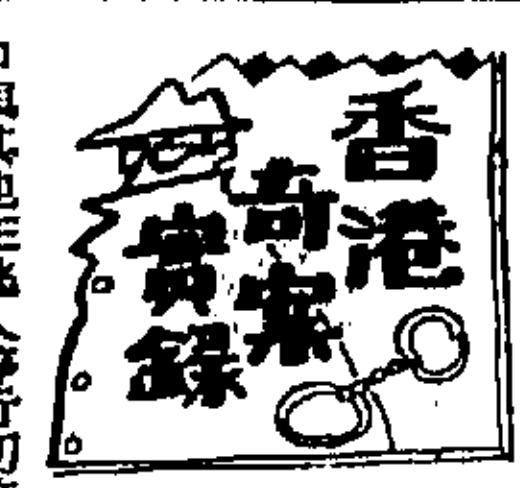 香港
奇案
實錄